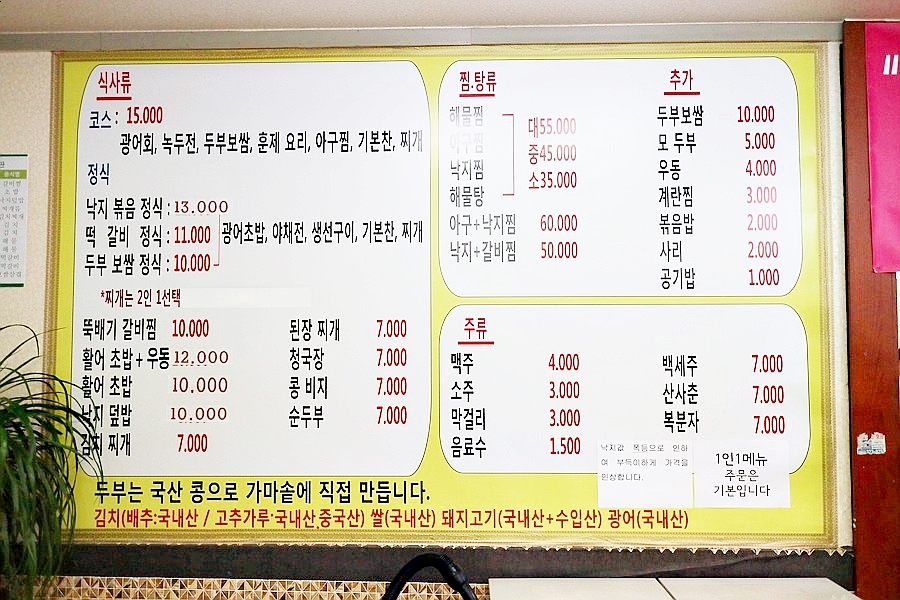 식사류
코스 : 15.000
광어회, 녹두전, 두부보쌈, 훈제 요리, 아구찜, 기본찬, 찌개
정식
낙지 볶음 정식 : 13.000
떡 갈비 정식 : 11.000
두부 보쌈 정식 : 10.000
광어초밥, 야채전, 생선구이, 기본찬, 찌개
*찌개는 2인 1선택
뚝배기 갈비찜 10.000
활어 초밥+우동 12,000
활어 초밥 10,000
낙지 덮밥 10.000
김치 찌개 7.000
된장 찌개 7.000
청국장 7.000
콩 비지 7.000
순두부 7.000
찜.탕류
해물찜
아구찜
낙지찜
해물탕
대55.000
중45.000
소35.000
아구+낙지찜 60.000
낙지+갈비찜 50.000
추가
두부보쌈 10.000
모 두부 5.000
우동 4.000
계란찜 3.000
볶음밥 2.000
사리 2.000
공기밥 1.000
주류
맥주 4.000
소주 3.000
막걸리 3.000
음료수 1.500
백세주 7.000
산사춘 7.000
복분자 7.000
낙지값 폭등으로 인하
여 부득이하게 가격을
인상합니다.
1인1메뉴
주문은
기본입니다
두부는 국산 콩으로 가마솥에 직접 만듭니다.
김치(배추:국내산 / 고추가루·국내산,중국산) 쌀(국내산) 돼지고기(국내산+수입산) 광어(국내산)